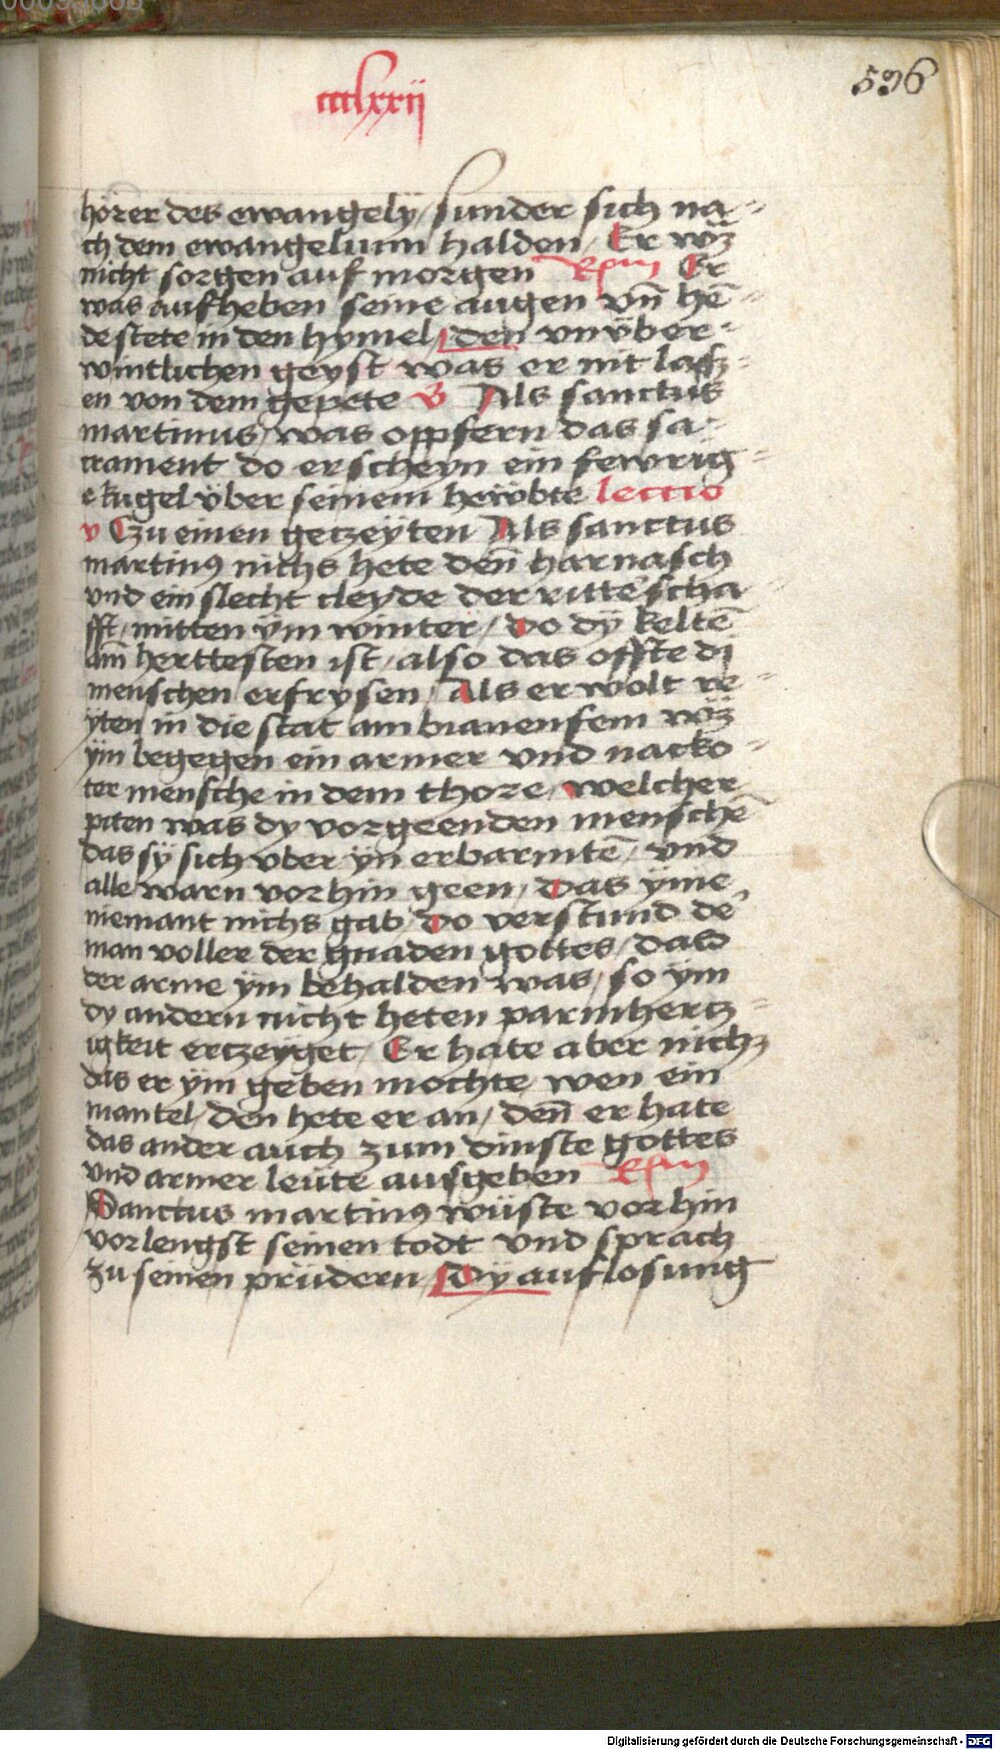 00093086
ccclxxii
596
hörer des ewangely / sunder sich na-
ch dem ewangelium halden / Er wz
nicht sorgen auf morgen Rsm Er
was aufheben seine augen vn̄ hē-
de stete in den hymel / den vnv̈ber-
wintlichen geyst was er nit lass-
en von dem gepete V Als sanctus
martinus / was oppfern das sa-
crament do erscheyn ein fewrig-
e kugel v̈ber seinem hewbte lectio
v Czu einen getzeyten Als sanctus
martinꝯ nichs hete den̄ harnasch
vnd ein slecht cleyde der ritte'scha-
fft / mitten ÿm winter / do dÿ keltē
am herttesten ist / also das offte di
menschen erfrysen / Als er wolt re-
ÿten in die stat ambianensem wz
ÿm begegen ein armer vnd nacko-
ter mensche in dem thore / welcher
piten was dy vorgeenden menschē
das sÿ sich vber ÿn erbarmtē / vnd
alle warn vorhin geen / das ÿme
niemant nichs gab / do verstund de'
man voller der gnaden gottes / das
der arme ÿm behalden was / so ÿm
dy andern nicht heten parmhertz-
igkeit ertzeyget / Er hate aber nichz
das er ÿm geben mochte wen ein
mantel / den hete er an / den̄ er hate
das ander auch zum dinste gottes
vnd armer leüte ausgeben Rsm
Sanctus martinꝯ wüste vorhin
vorlengst seinen todt vnd sprach
zu seinen prüdern / Dÿ auflosung
Digitalisierung gefördert durch die Deutsche Forschungsgemeinschaft - DFG